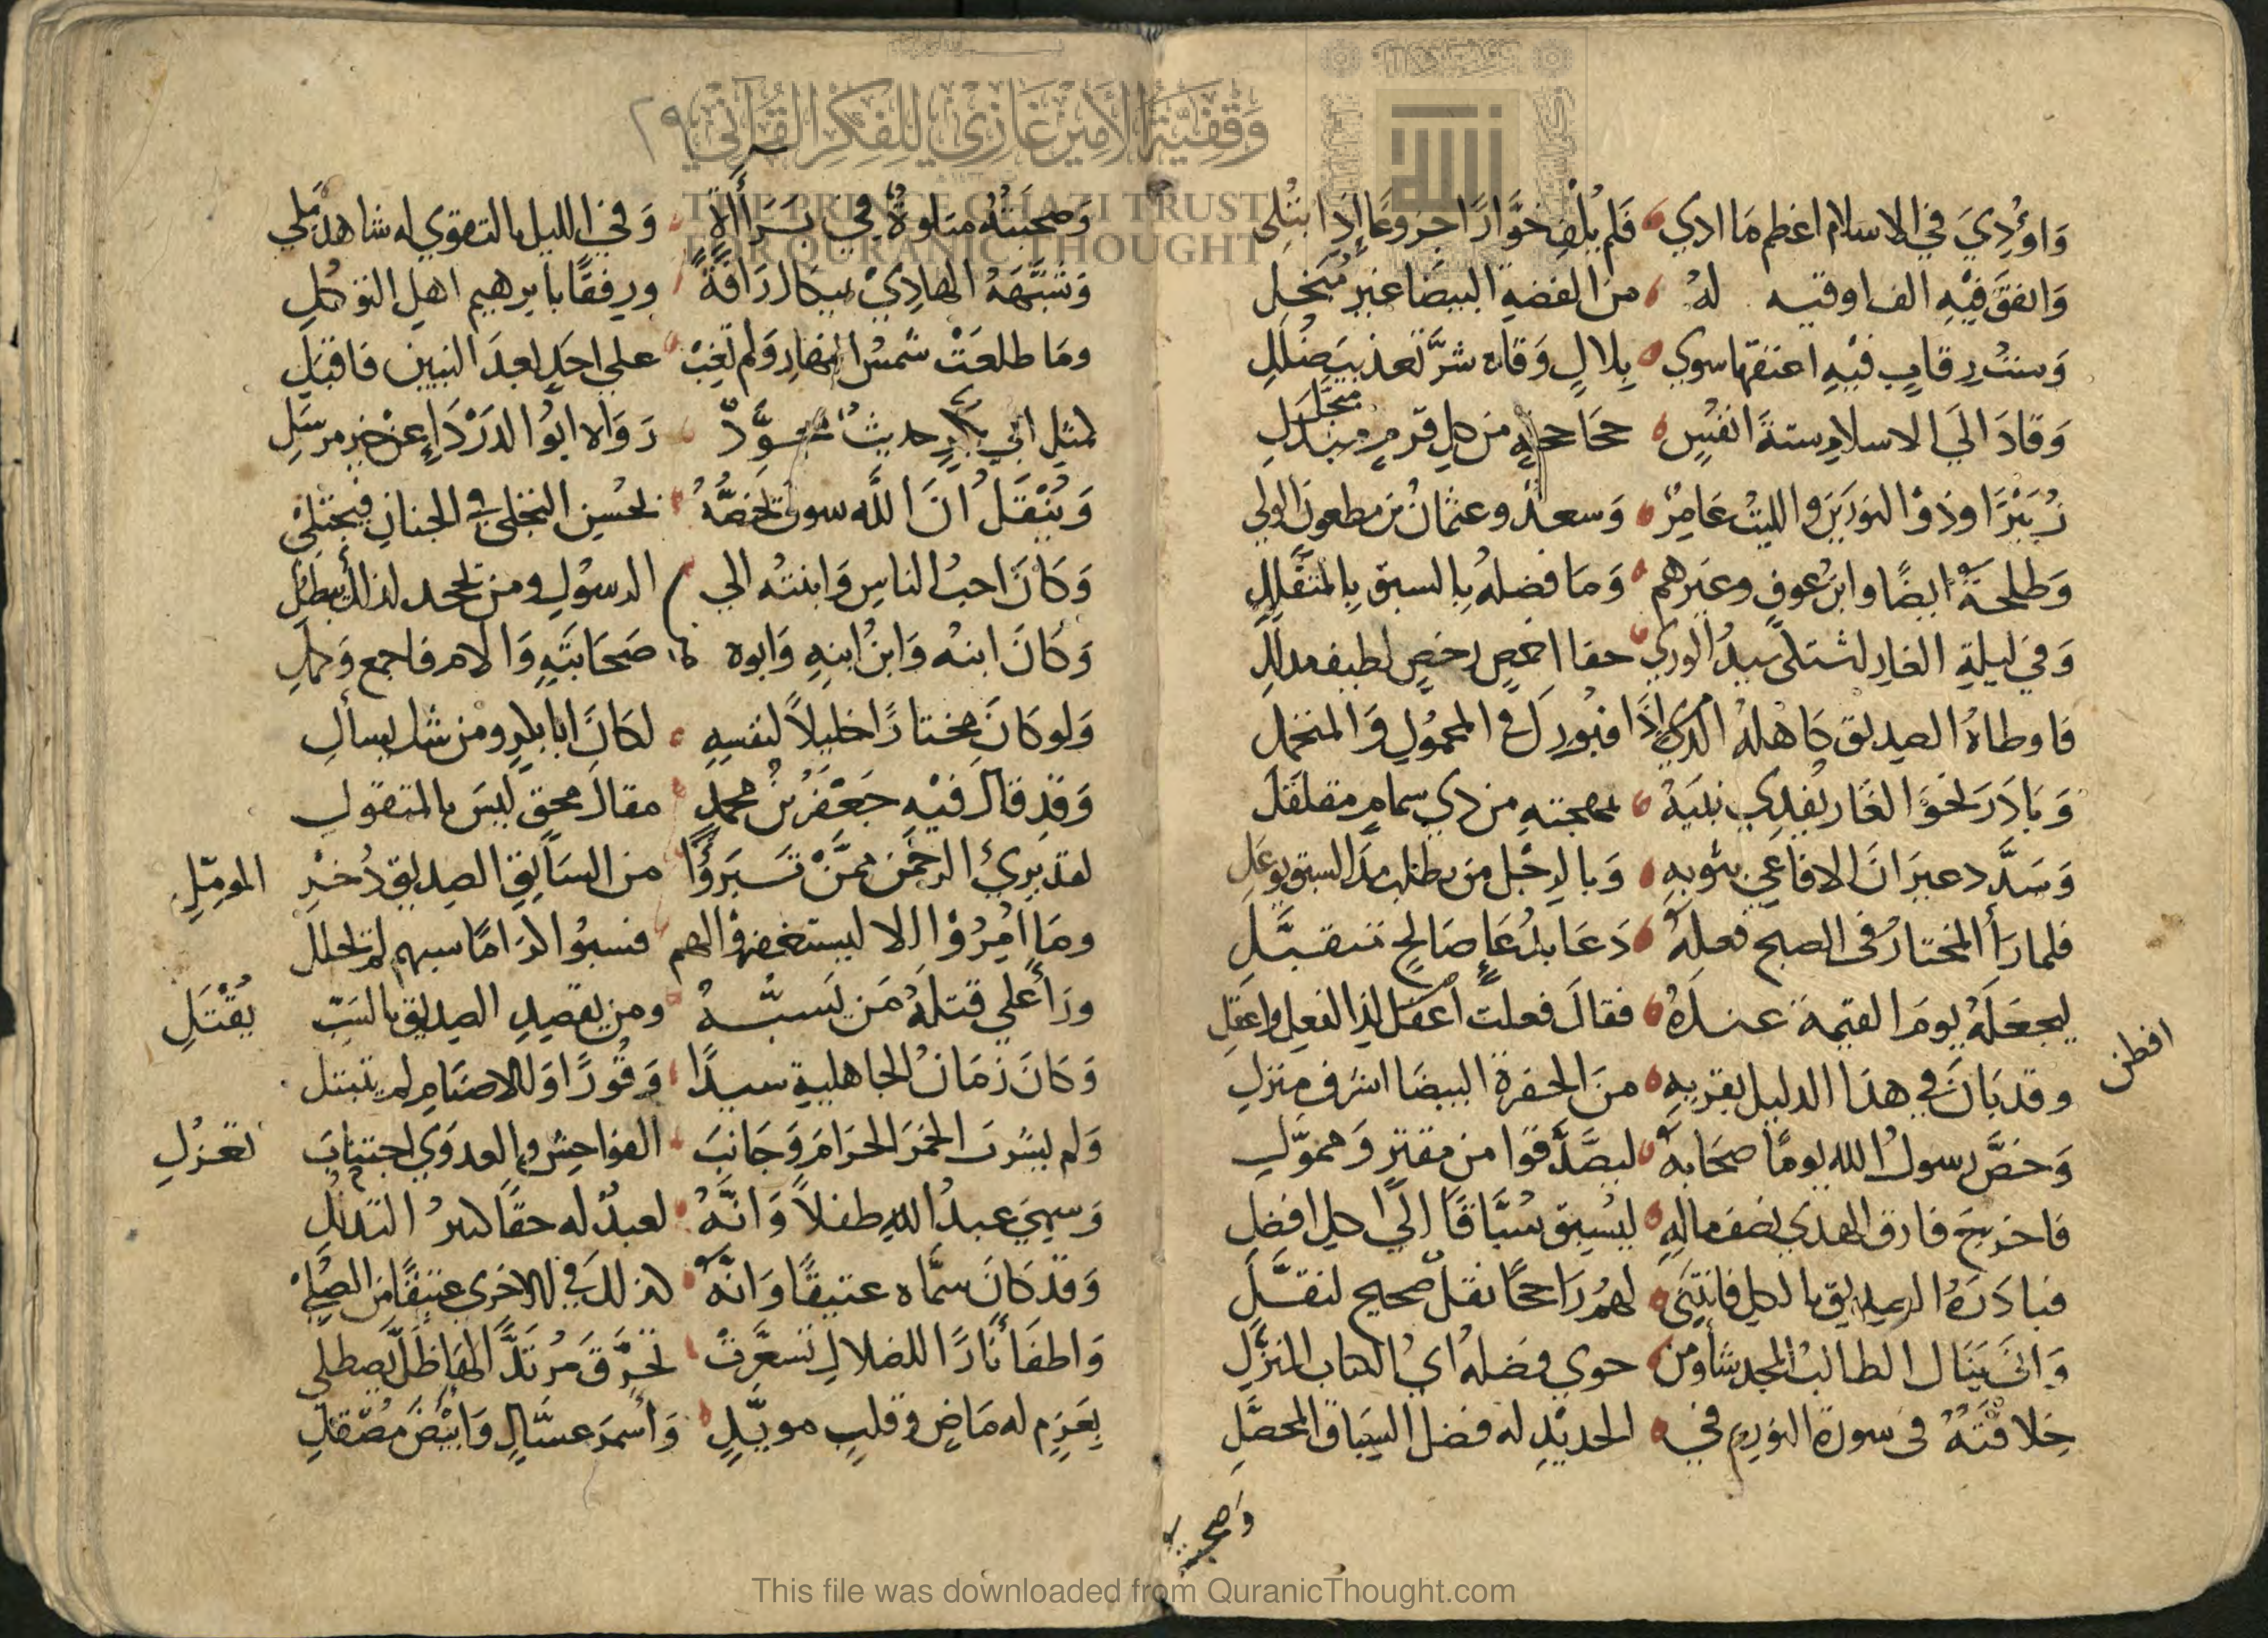 وَاوُذِيَ في الاسلام اعظم مَا اذي فَلم يُلْفِ خَوَّارًا جزوعًا اِذَا ابتُلِي
وَانفقَ فيْهِ الف اوقيه لهُ منَ الفضهِ البيضَا غير مُبَخلِ
وَستُ رِقابٍ فيْهِ اعتقها سوي بِلالٍ وَقاه شرَّ تعذيب
وَقادَ الَي الاسلامِ ستةَ انفسٍ جحَاجحةٍ من كلِ قرمٍ
زُبَيْرًا وذوْ النورَيَن والليثُ عَامِرٌ وَسعدٌ وعثمانُ بن مظعونَ الولي
وَطلحةَ ايضًا وابنُ عوفٍ وغيرهم وَمَا فضلهُ بالسبق بِالمتقَّلِلِ
وَفي ليلةِ الغارِ سيدُ الوري حفا اخمصٍ رخصٍ لطيف
فاوطاهُ الصديق كاهلهُ الذي فبُورِكَ في المحمُولِ وَالمتحمل
وَبَادَرَ نحوَ الغَار يُفدِي نبيَهُ بمهجتهِ من ذي سمامٍ مقلقلَ
وَسَدَّ الافاعي بثوبهِ وَبالرِجْل من
فلما رَأ المختارُ في الصبح فعلهُ دَعَا بدُعَاءٍ صَالحٍ متقبَّلِ
ليجعَلهُ يومَ القيمة عندَهُ فقالَ فعلتُ لذا الفعل واعقلِ
افطن
وقد بَانَ في هذا الدليل بقربهِ منَ الحفرة البيضَا اشرف منزلِ
وَحَضَّ رسولُ الله يومًا صحَابهُ ليصَّدَّقوا من مقترٍ وَمموّلِ
فاخرجَ فاروق الهدي نصف مالهِ ليسبق سبَّاقًا الي كل افضلِ
فبادَرَهُ الصديق بالكل فانثني لهُم رَاجحًا نقلٌ صحيح
وَانَى يَنَال الطالبُ المجد شاومن حوي فضلهُ اي الكتاب المنزَّلِ
خلافتهُ في سورة النورِ في الحديْدِ له فضل السبَاق المحصَّلِ
وَصحبته
٢٩
وَصحبَتُهُ متلوةٌ في بَرَأَاةٍ وَفي الليل بالتقوي له شاهد جلي
وَشبَّههُ الهادِيْ بميكالَ رَافةً ورِفقًا بابرهيم اهل التوكلِ
ومَا طلعَتْ شمسُ النهارِ وَلم تغِبْ علي احَدٍ بعدَ النبيين فاقبَلِ
لمثلِ ابي بكرٍ حديثٌ رَوَاه ابُو الدَرْدَاءِ عن خير مرسَلِ
وَيُنْقَلُ انَ اللّه سوف يخصُّهُ بحُسنِ التجلي في الجنانِ فيجتلي
وَكَانَ احبُ الناسِ وَابنتُه الي الرسوُلِ ومن يجحد لذلك يبطِلِ
وَكانَ ابنهُ وَابنُ ابنهِ وَابوه صَحَابتَهِ وَالام فاجمع وَكملِ
وَلو كَانَ مختارًا خليلاً لنفسهِ لكانَ ابا بكرٍ ومن شك يسألِ
وَقدْ قالَ فيْهِ جَعْفرُ بنُ محمدٍ مقالَ محقٍ ليسَ بالمتقولِ
لقد بَرِيَ الرحمَن ممنْ تَبَرَؤُا من السَابقِ الصديق ذُخرِ المومّلِ
ومَا اُمِرُوْا الا ليستغفروْا لهم فسبوُا كرَامًا سبهم لم يحلل
ورَأَ علي قتلهُ مَن يَسبُّهُ ومن يقصدِ الصديق بالسَبّ يُقْتَلِ
وَكانَ زمَانَ الجاهلية سيدًا وَقُورًا وَللاصنَامِ لم يتبتل
وَلم يشرب الخمَر الحرَامَ وَجَانبَ الفوَاحِش والعدوَي اجتنابَ تعَزلِ
وَسمِيَ عبدُ اللهِ طفلاً وَانَّهُ لعبدٌ له حقًا كثيرُ التذلل
وَقدْ كَانَ سمَّاه عتيقًا وَانَّهُ كذلك في الاخري عتيقًا من الصلي
وَاطفَأ نَارًا للضلالِ تسعَّرت تحرِّقَ مرْتدًّا لهَا ظَلَّ يصطلي
بِعَزمٍ له مَاضٍ وقلبٍ مويَّدٍ وَأسمرَ عسَّالٍ وَابيْضَ مصْقلِ
وقفية الأمير غازي للفكر القرآني
THE PRINCE GHAZI TRUST
FOR QURANIC THOUGHT
This file was downloaded from QuranicThought.com